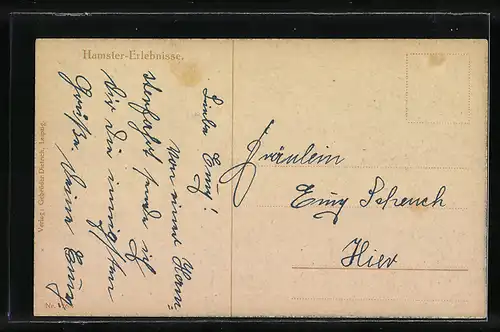 Hamster-Erlebnisse.
Liebe Emy!
Von einer Ham-
sterfahrt sende ich
Dir die innigsten
Grüße Deine Emmy
Fräulein
Emy Scheuch
Hier
Verlag: Gebrüder Dietrich, Leipzig.
Nr.